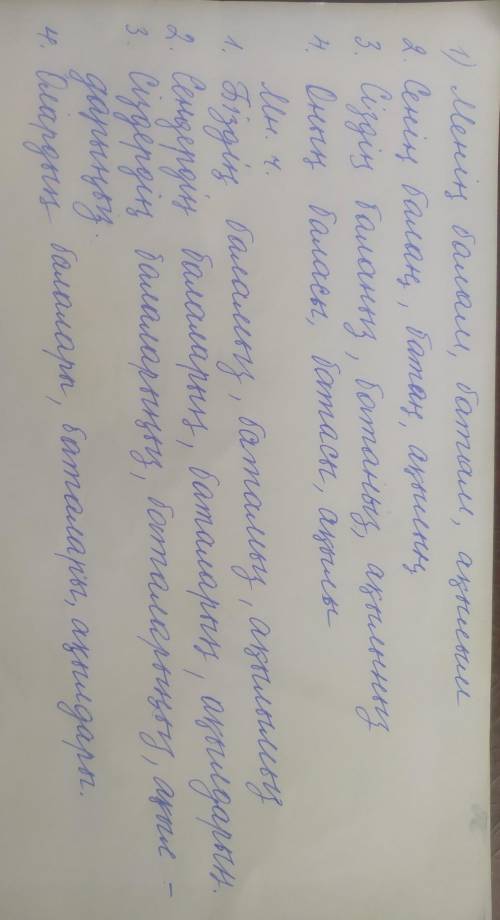 1) Менің балам, батам, ақылым
2. Сенің балаң, батаң, ақылың
3. Сіздің балаңыз, батаңыз, ақылыңыз
4. Оның баласы, батасы, ақылы
Мн. ч.
1. Біздің баламыз, батамыз, ақылымыз
2. Сендердің балаларың, баталарың, ақылдарың.
3. Сіздердің балаларыңыз, баталарыңыз, ақыл-
дарыңыз.
4. Олардың балалары, баталары, ақылдары.